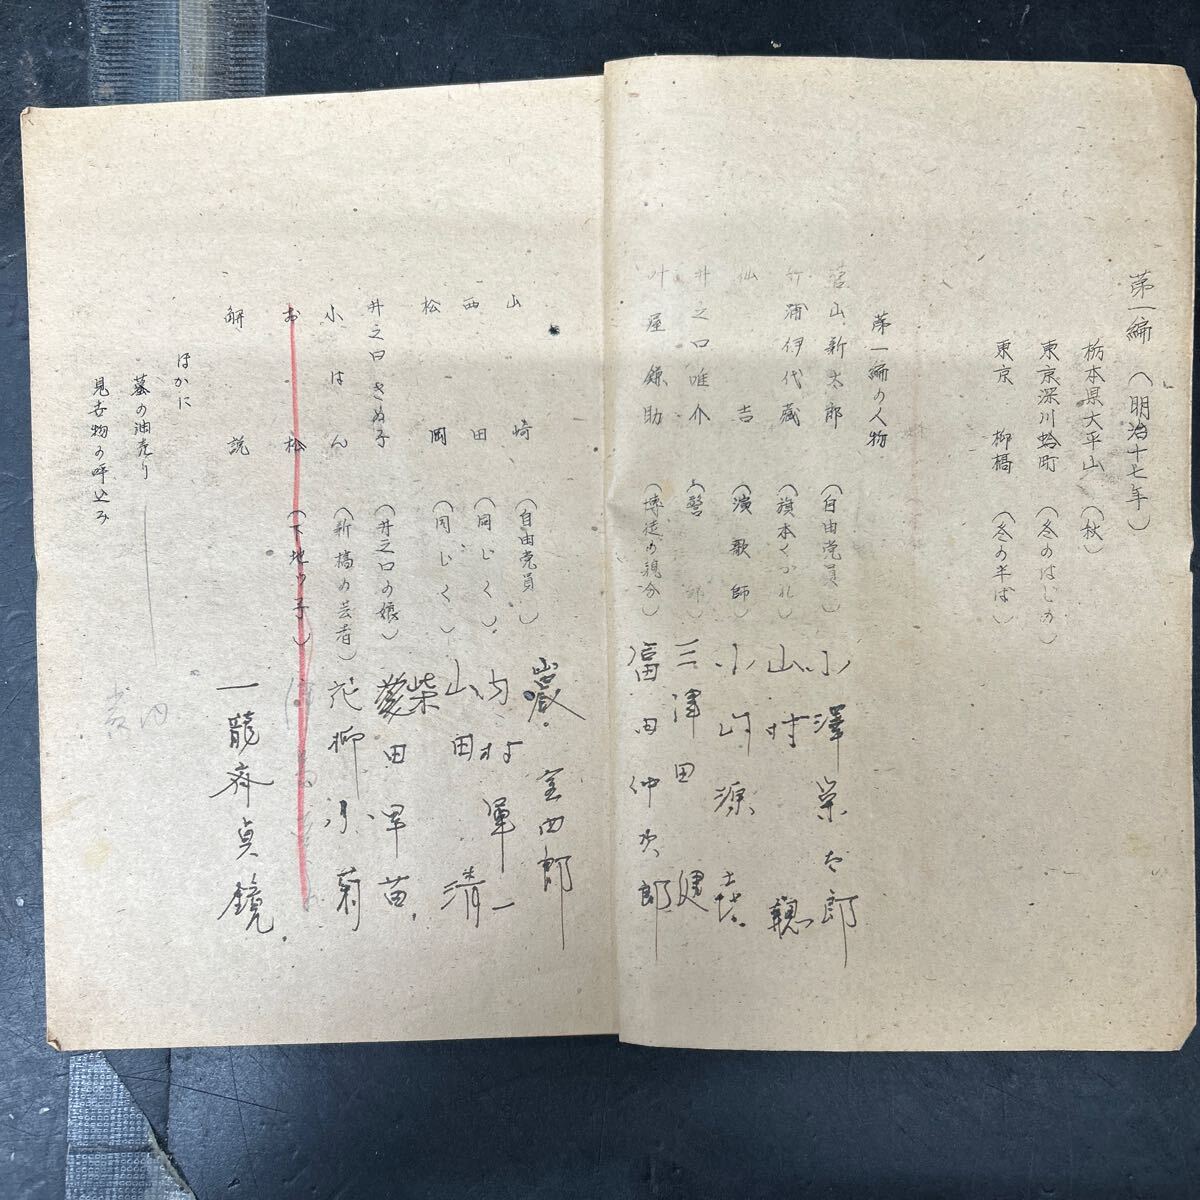 第一編（明治十七年）
栃本県大平山（秋）
東京深川蛤町（冬のはじめ）
東京　柳橋（冬の半ば）
第一編の人物
富山新太郎（自由党員）小澤栄太郎
竹浦伊代蔵（旗本くづれ）山村聰
仙吉（演歌師）小山源喜
井之口唯介（警部）三津田健
叶屋鎌助（博徒の親分）富田仲次郎
山崎（自由党員）巌金四郎
西田（同じく）内村軍一
松岡（同じく）山田清
井之口きぬ子（井之口の娘）柴田早苗
小はん（新橋の芸者）花柳小菊
お松（下地ッ子）
解説　一龍斎貞鏡
ほかに
蟇の油売り
見世物の呼込み